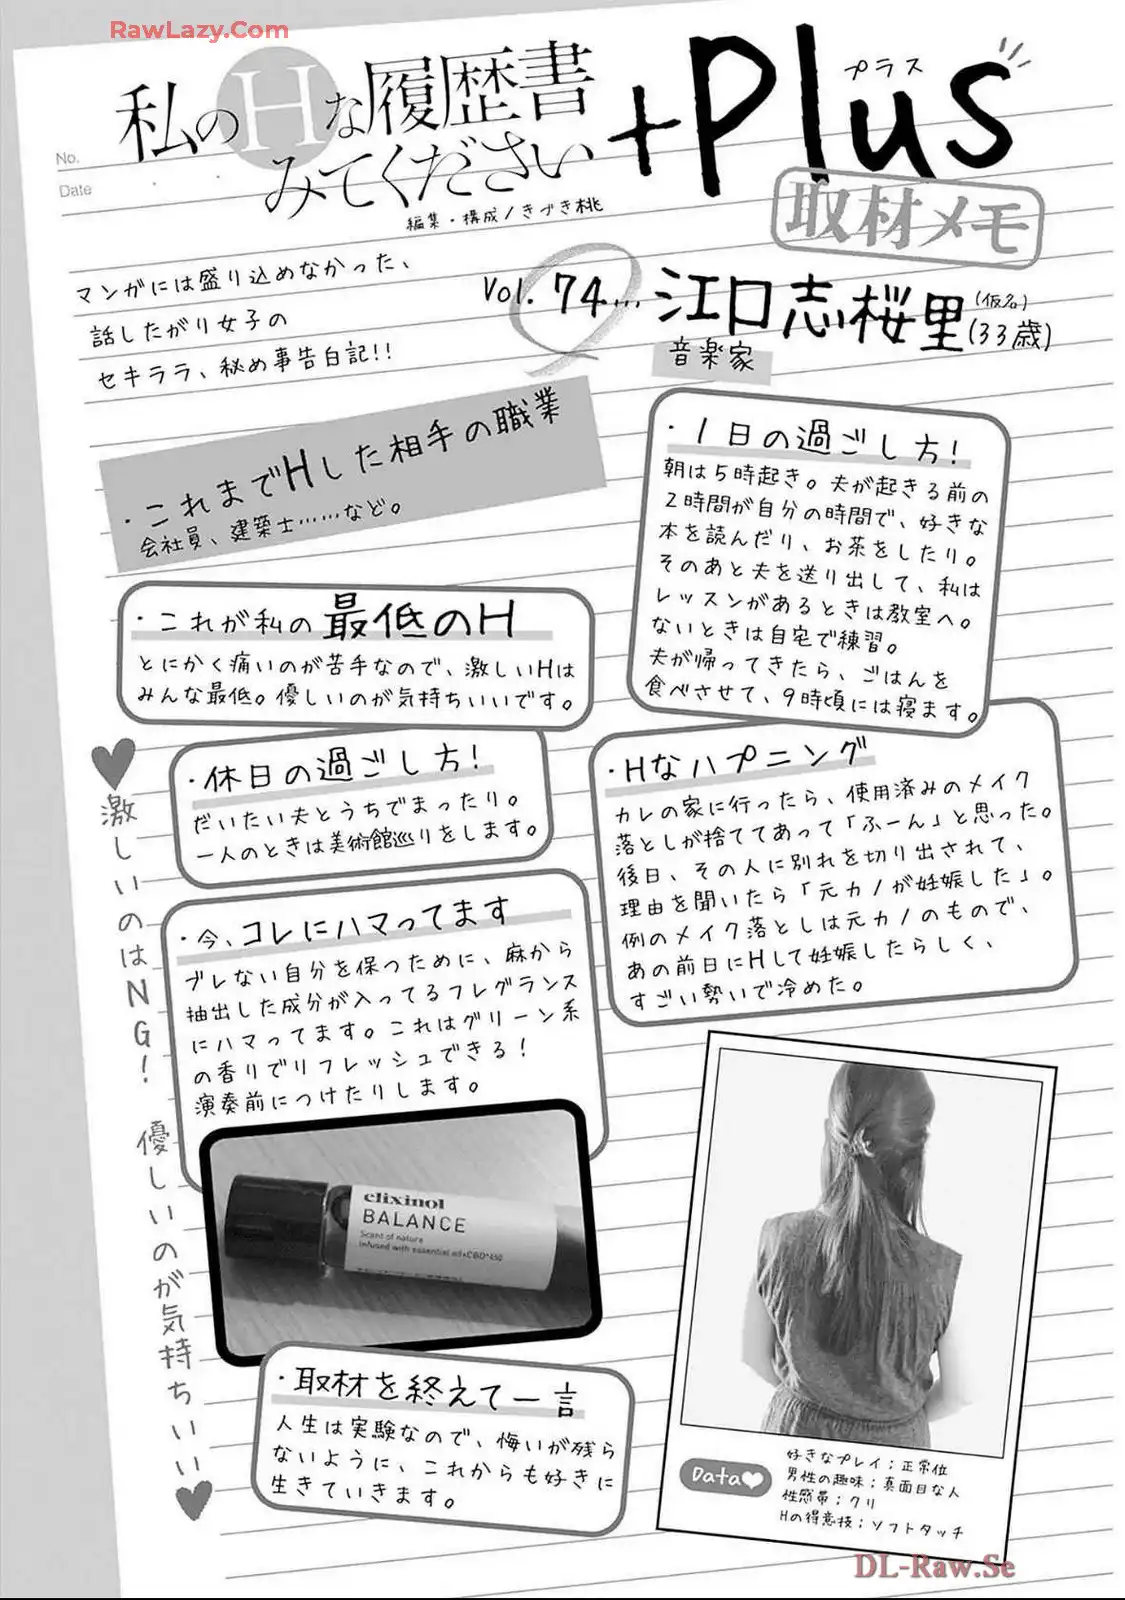 RawLazy.Com
私のHな履歴書
みてください
+Plus
プラス
No.
Date
編集・構成/きづき桃
取材メモ
マンガには盛り込めなかった、
話したがり女子の
セキララ、秘め事告白記!!
Vol. 74... 江口志桜里(仮名)(33歳)
音楽家
・これまでHした相手の職業
会社員、建築士……など。
・1日の過ごし方!
朝は5時起き。夫が起きる前の
2時間が自分の時間で、好きな
本を読んだり、お茶をしたり。
そのあと夫を送り出して、私は
レッスンがあるときは教室へ。
ないときは自宅で練習。
夫が帰ってきたら、ごはんを
食べさせて、9時頃には寝ます。
・これが私の最低のH
とにかく痛いのが苦手なので、激しいHは
みんな最低。優しいのが気持ちいいです。
・休日の過ごし方!
だいたい夫とうちでまったり。
一人のときは美術館巡りをします。
・Hなハプニング
カレの家に行ったら、使用済みのメイク
落としが捨ててあって「ふーん」と思った。
後日、その人に別れを切り出されて、
理由を聞いたら「元カノが妊娠した」。
例のメイク落としは元カノのもので、
あの前日にHして妊娠したらしく、
すごい勢いで冷めた。
・今、コレにハマってます
ブレない自分を保つために、麻から
抽出した成分が入ってるフレグランス
にハマってます。これはグリーン系
の香りでリフレッシュできる!
演奏前につけたりします。
elixinol
BALANCE
Scent of nature
Infused with essential oil+CBD*450
♥激しいのはNG! 優しいのが気持ちいい♥
・取材を終えて一言
人生は実験なので、悔いが残ら
ないように、これからも好きに
生きていきます。
Data♥
好きなプレイ;正常位
男性の趣味;真面目な人
性感帯;クリ
Hの得意技;ソフトタッチ
DL-Raw.Se